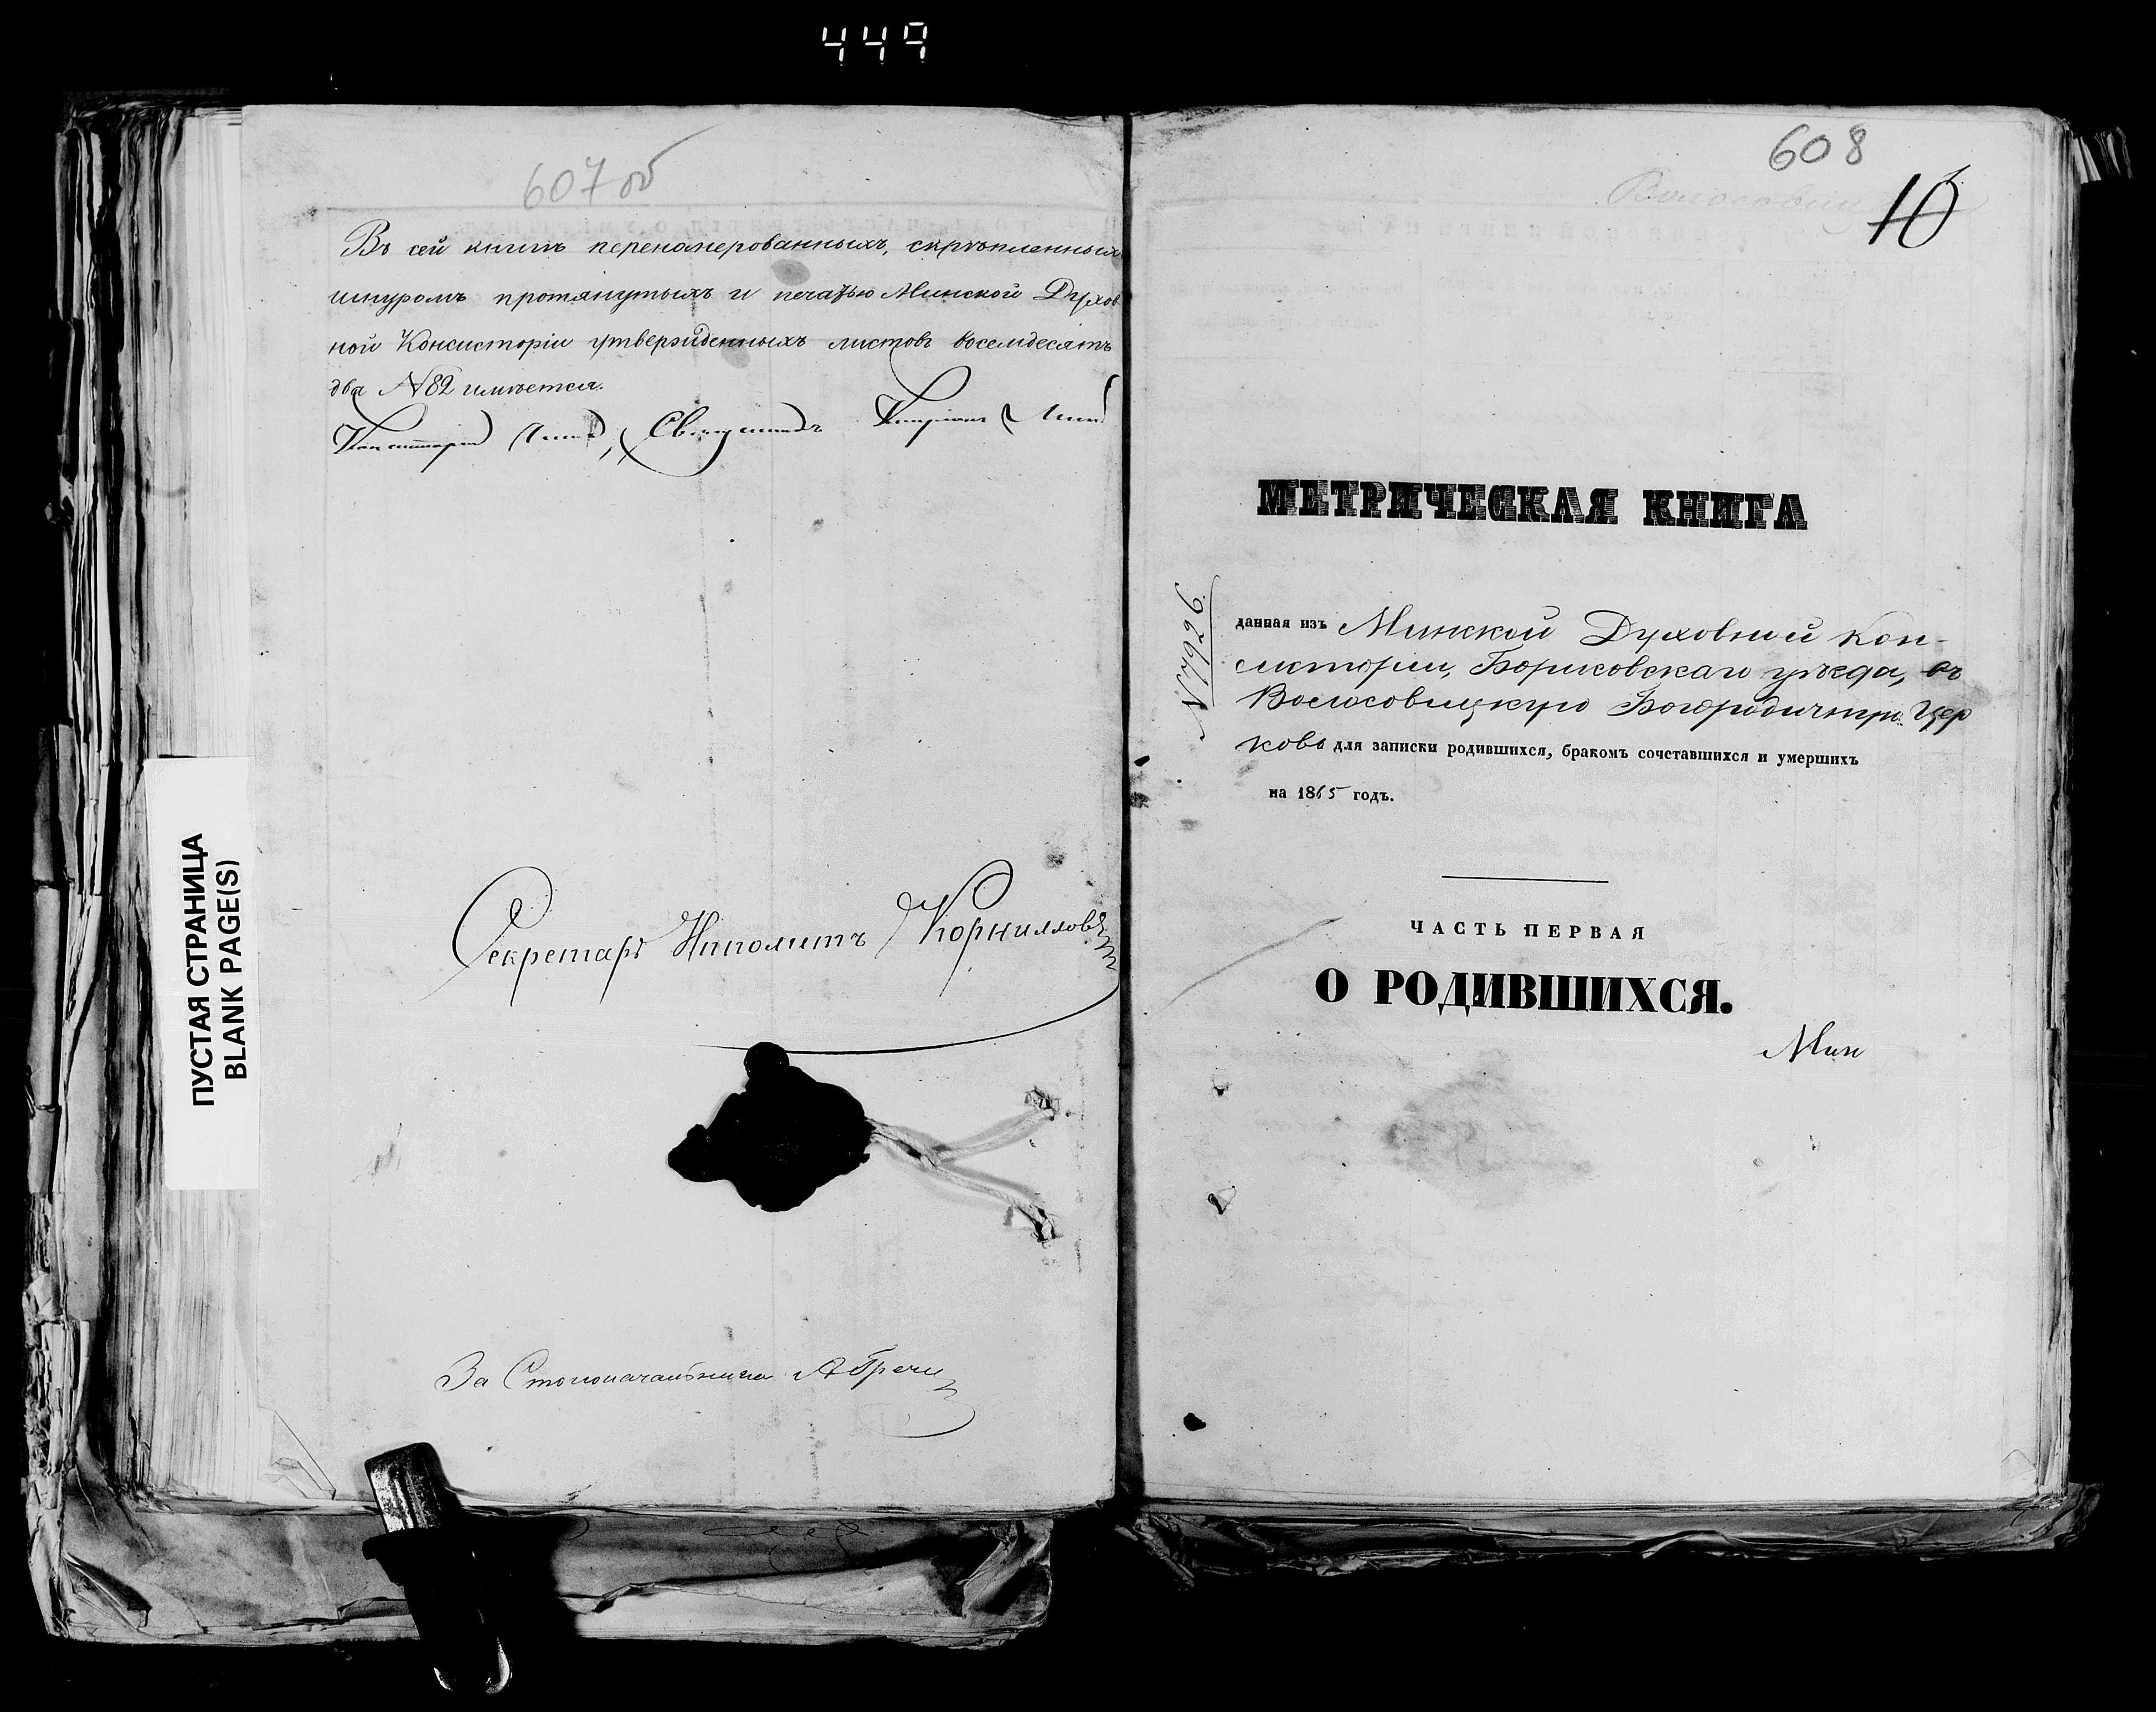 449
607 об
Въ сей книгѣ переномерованныхъ, скрѣпленныхъ
шнуромъ протянутыхъ и печатью Минской Духов
ной Консисторіи утвержденныхъ листовъ восемдесятъ
два №82 имѣется.
Консисторіи Членъ, Священникъ
Секретарь Иполитъ Корниллов
За Столоначальника
ПУСТАЯ СТРАНИЦА
BLANK PAGE(S)
608
10
Волосовичи
МЕТРИЧЕСКАЯ КНИГА
№7926
данная изъ Минской Духовной Кон-
систоріи, Борисовскаго уѣзда, въ
Волосовицкую Богородичную Цер
ковь для записки родившихся, бракомъ сочетавшихся и умершихъ
на 1865 годъ.
ЧАСТЬ ПЕРВАЯ
О РОДИВШИХСЯ.
Мин